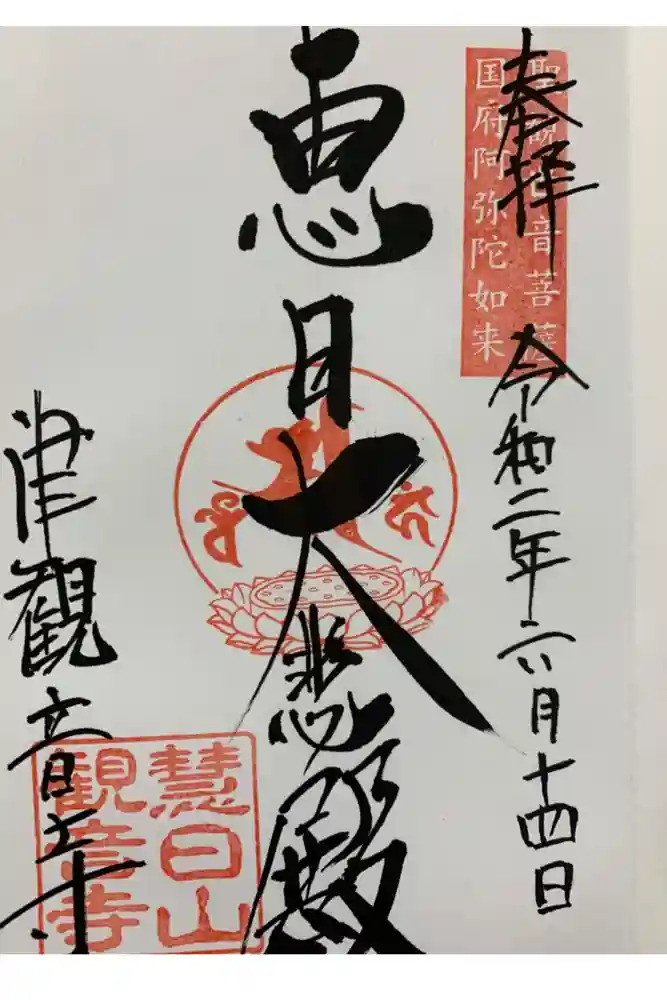 奉拝
令和二年六月十四日
聖観世音菩薩
国府阿弥陀如来
恵日大悲殿
津観音寺
慧日山
観音寺